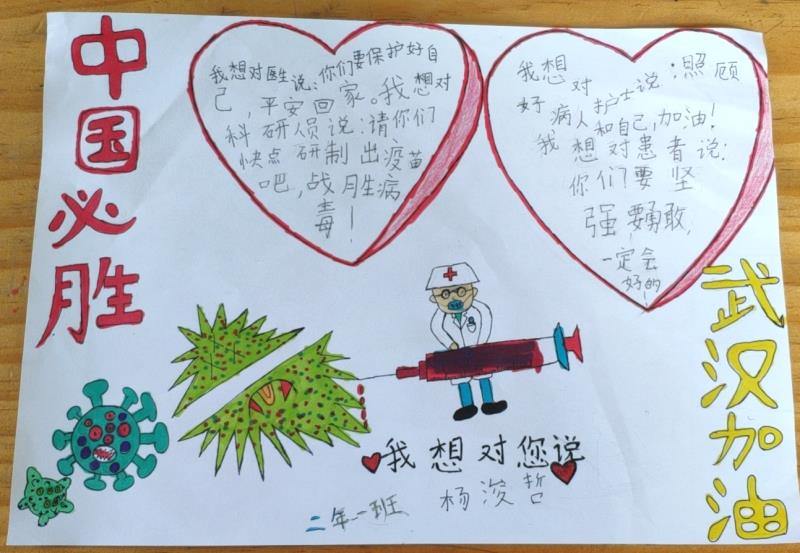 中国必胜
我想对医生说：你们要保护好自
己，平安回家。我想对
科研人员说：请你们
快点研制出疫苗
吧，战胜病
毒！
我想对护士说：照顾
好病人和自己，加油！
我想对患者说：
你们要坚
强，要勇敢，
一定会
好的！
武汉加油
我想对您说
二年一班 杨浚哲